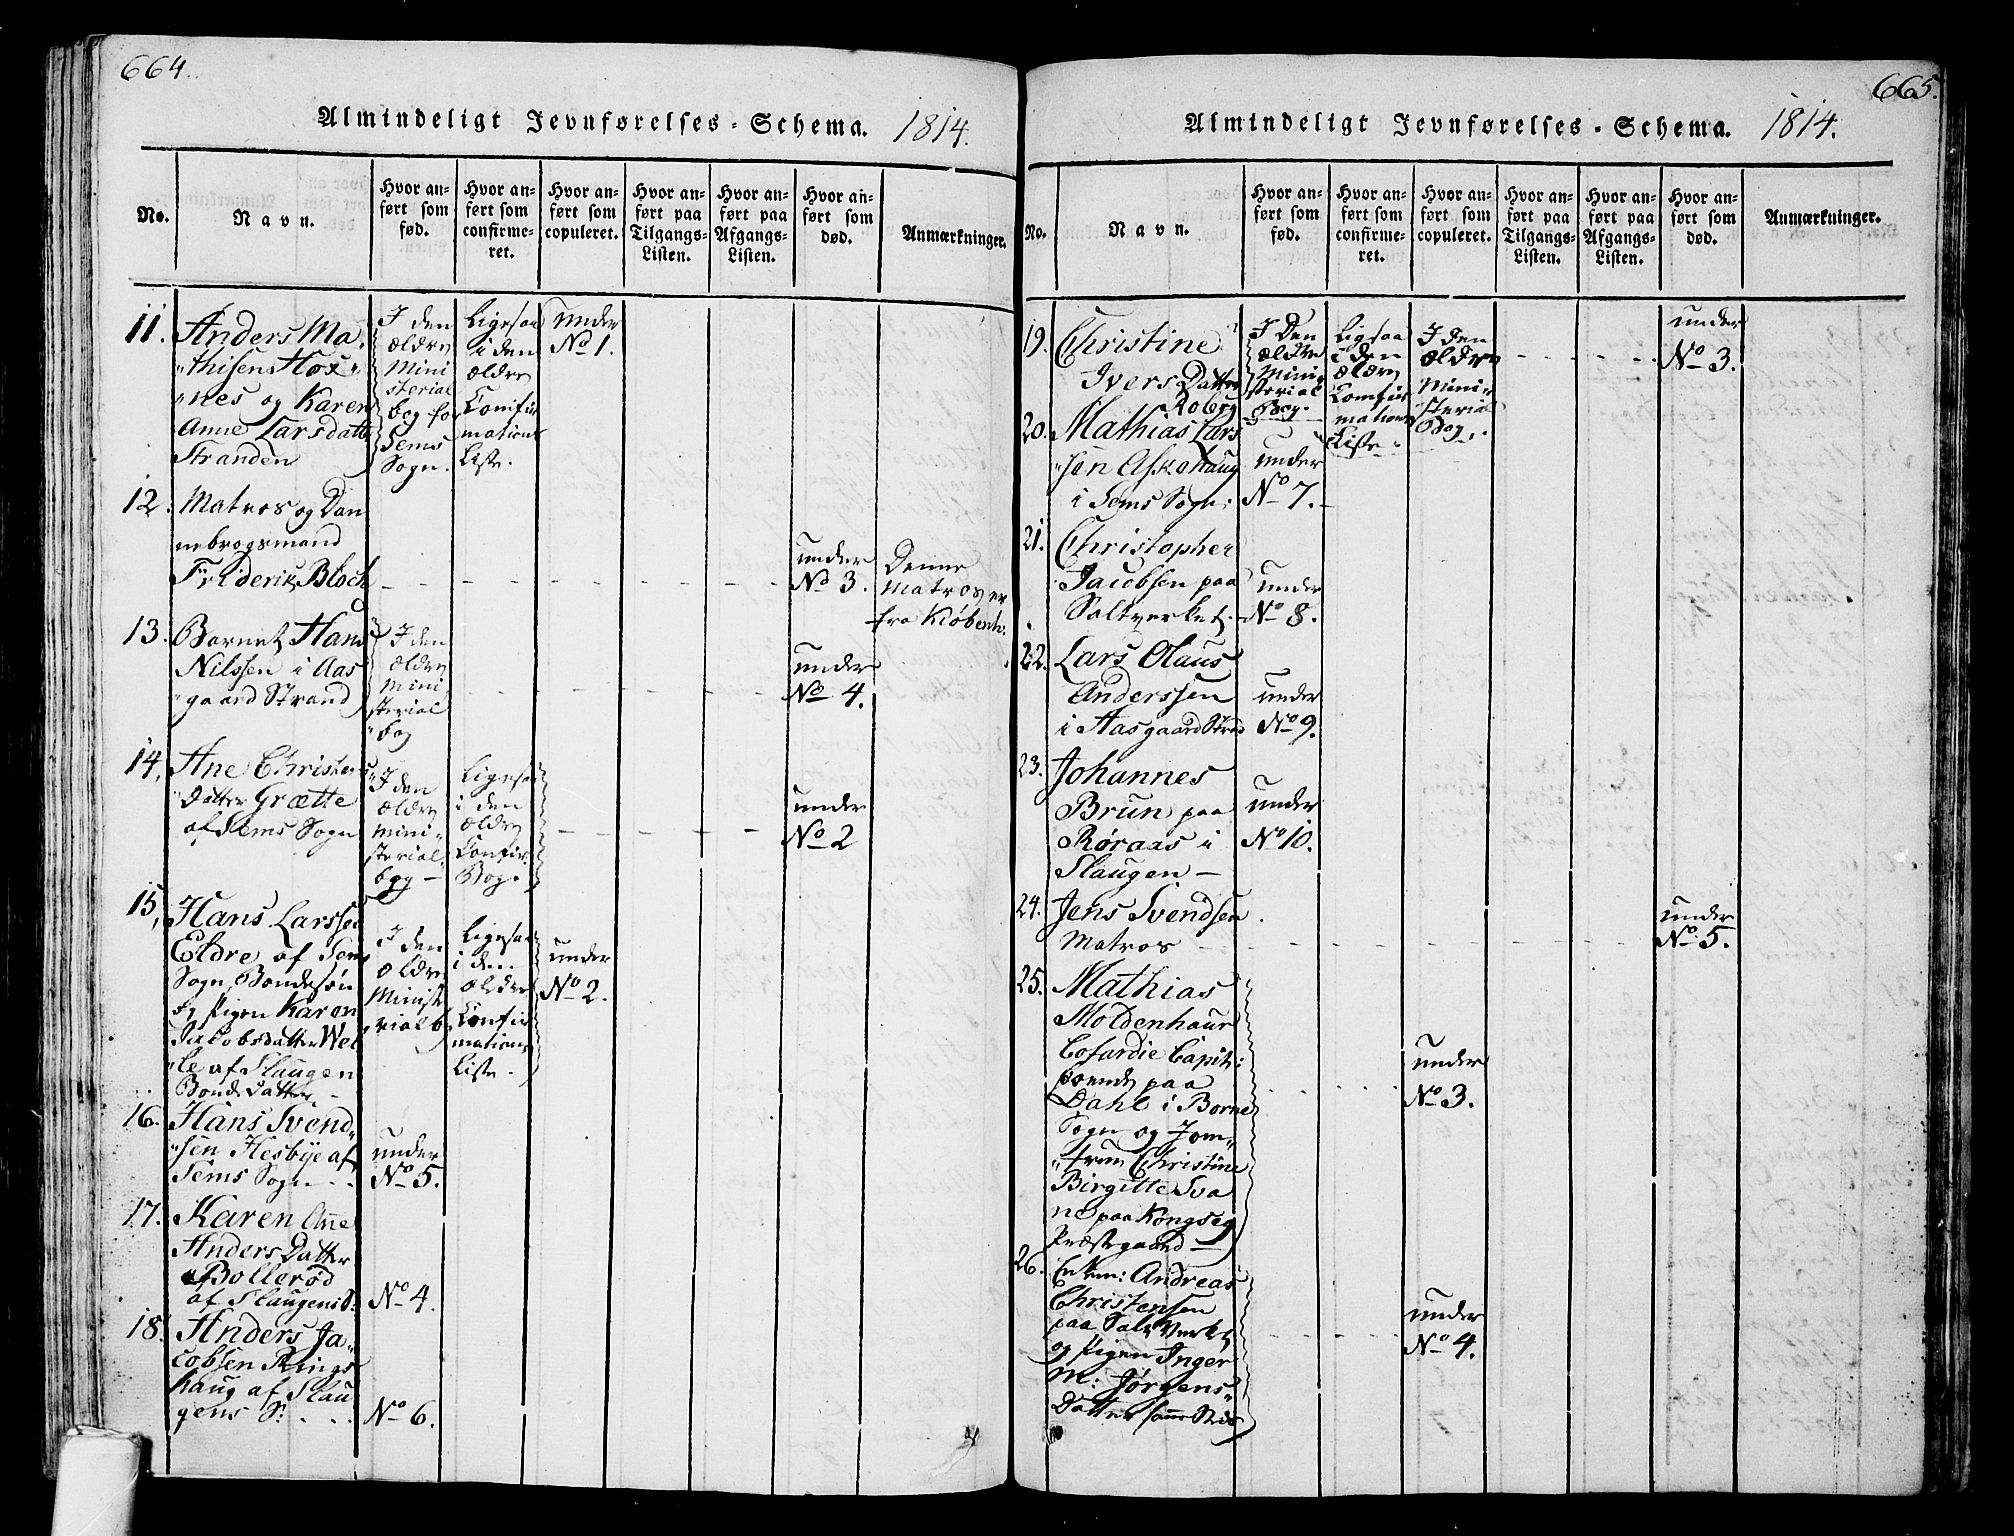 664.
Almindeligt Jevnførelses-Schema. 1814.
No.
Navn.
Hvor an-
ført som
fød.
Hvor an-
ført som
confirme-
ret.
Hvor an-
ført som
copuleret.
Hvor an-
ført paa
Tilgangs-
Listen.
Hvor an-
ført paa
Afgangs-
Listen.
Hvor an-
ført som
død.
Anmærkninger.
11. Anders Ma
thisen Hox
nes og Karen
Anne Larsdatter
Stranden
I den
ældre
Mini
sterial
bog for
Sems
Sogn.
Ligesaa
i den
ældre
Confir
mations
Liste.
under
No 1.
12. Matros og Dan
nebrogsmand
Friderik Bloch
under
No 3.
Denne
Matros er
fra Kiøbenh:
13. Barnet Hans
Nilssen i Aas
gaard Strand
I den
ældre
Mini
sterial
bog
under
No 4.
14. Ane Christens
Datter Grætte
af Sems Sogn
I den
ældre
Mini-
sterial
bog -
Ligesaa
i den
ældre
Confir.
Bog.
under
No 2
15. Hans Larssen
Eldre af Sems
Sogn, Bondesøn
og Pigen Karen
Jacobsdatter Wel
le af Slaugen
Bonde Datter -
I den
ældre
Ministe
rial b.
Ligesaa
i den
ældre
Confir
mations
Liste.
under
No 2.
16. Hans Svend
sen Hesbye af
Sems Sogn
under
No 5.
17. Karen Ane
Anders Datter
Bollerød
af Slaugens S:
No 4.
18. Anders Ja
cobsen Rings
haug af Slau
gens S:
No 6.
665.
Almindeligt Jevnførelses-Schema. 1814.
No.
Navn.
Hvor an-
ført som
fød.
Hvor an-
ført som
confirme-
ret.
Hvor an-
ført som
copuleret.
Hvor an-
ført paa
Tilgangs-
Listen.
Hvor an-
ført paa
Afgangs-
Listen.
Hvor an-
ført som
død.
Anmærkninger.
19. Christine
Ivers Datter
Roberg
I Den
ældre
Mini
sterial
Bog.
Ligsaa
i den
ældre
Comfir
mations
Liste.
I den
ældre
Mini
sterial
Bog.
under
No 3.
20. Mathias Lars
sen Askehaug
i Sems Sogn.
under
No 7.
21. Christopher
Jacobsen paa
Saltverket.
under
No 8.
22. Lars Olaus
Anderssen
i Aasgaard Strand
under
No 9.
23. Johannes
Brun paa
Røraas i
Slaugen -
under
No 10.
24. Jens Svendsen
Matros
under
No 5.
25. Mathias
Moldenhaur
Cofardie Capit:
boende paa
Dahl i Borne
Sogn og Jom
frue Christine
Birgitte Sva
ne paa Kongseg
Præstegaard -
under
No 3.
26. Enkem: Andreas
Christensen
paa Salt Verket
og Pigen Inger
M: Jørgens
Datter samme Sted
under
No 4.